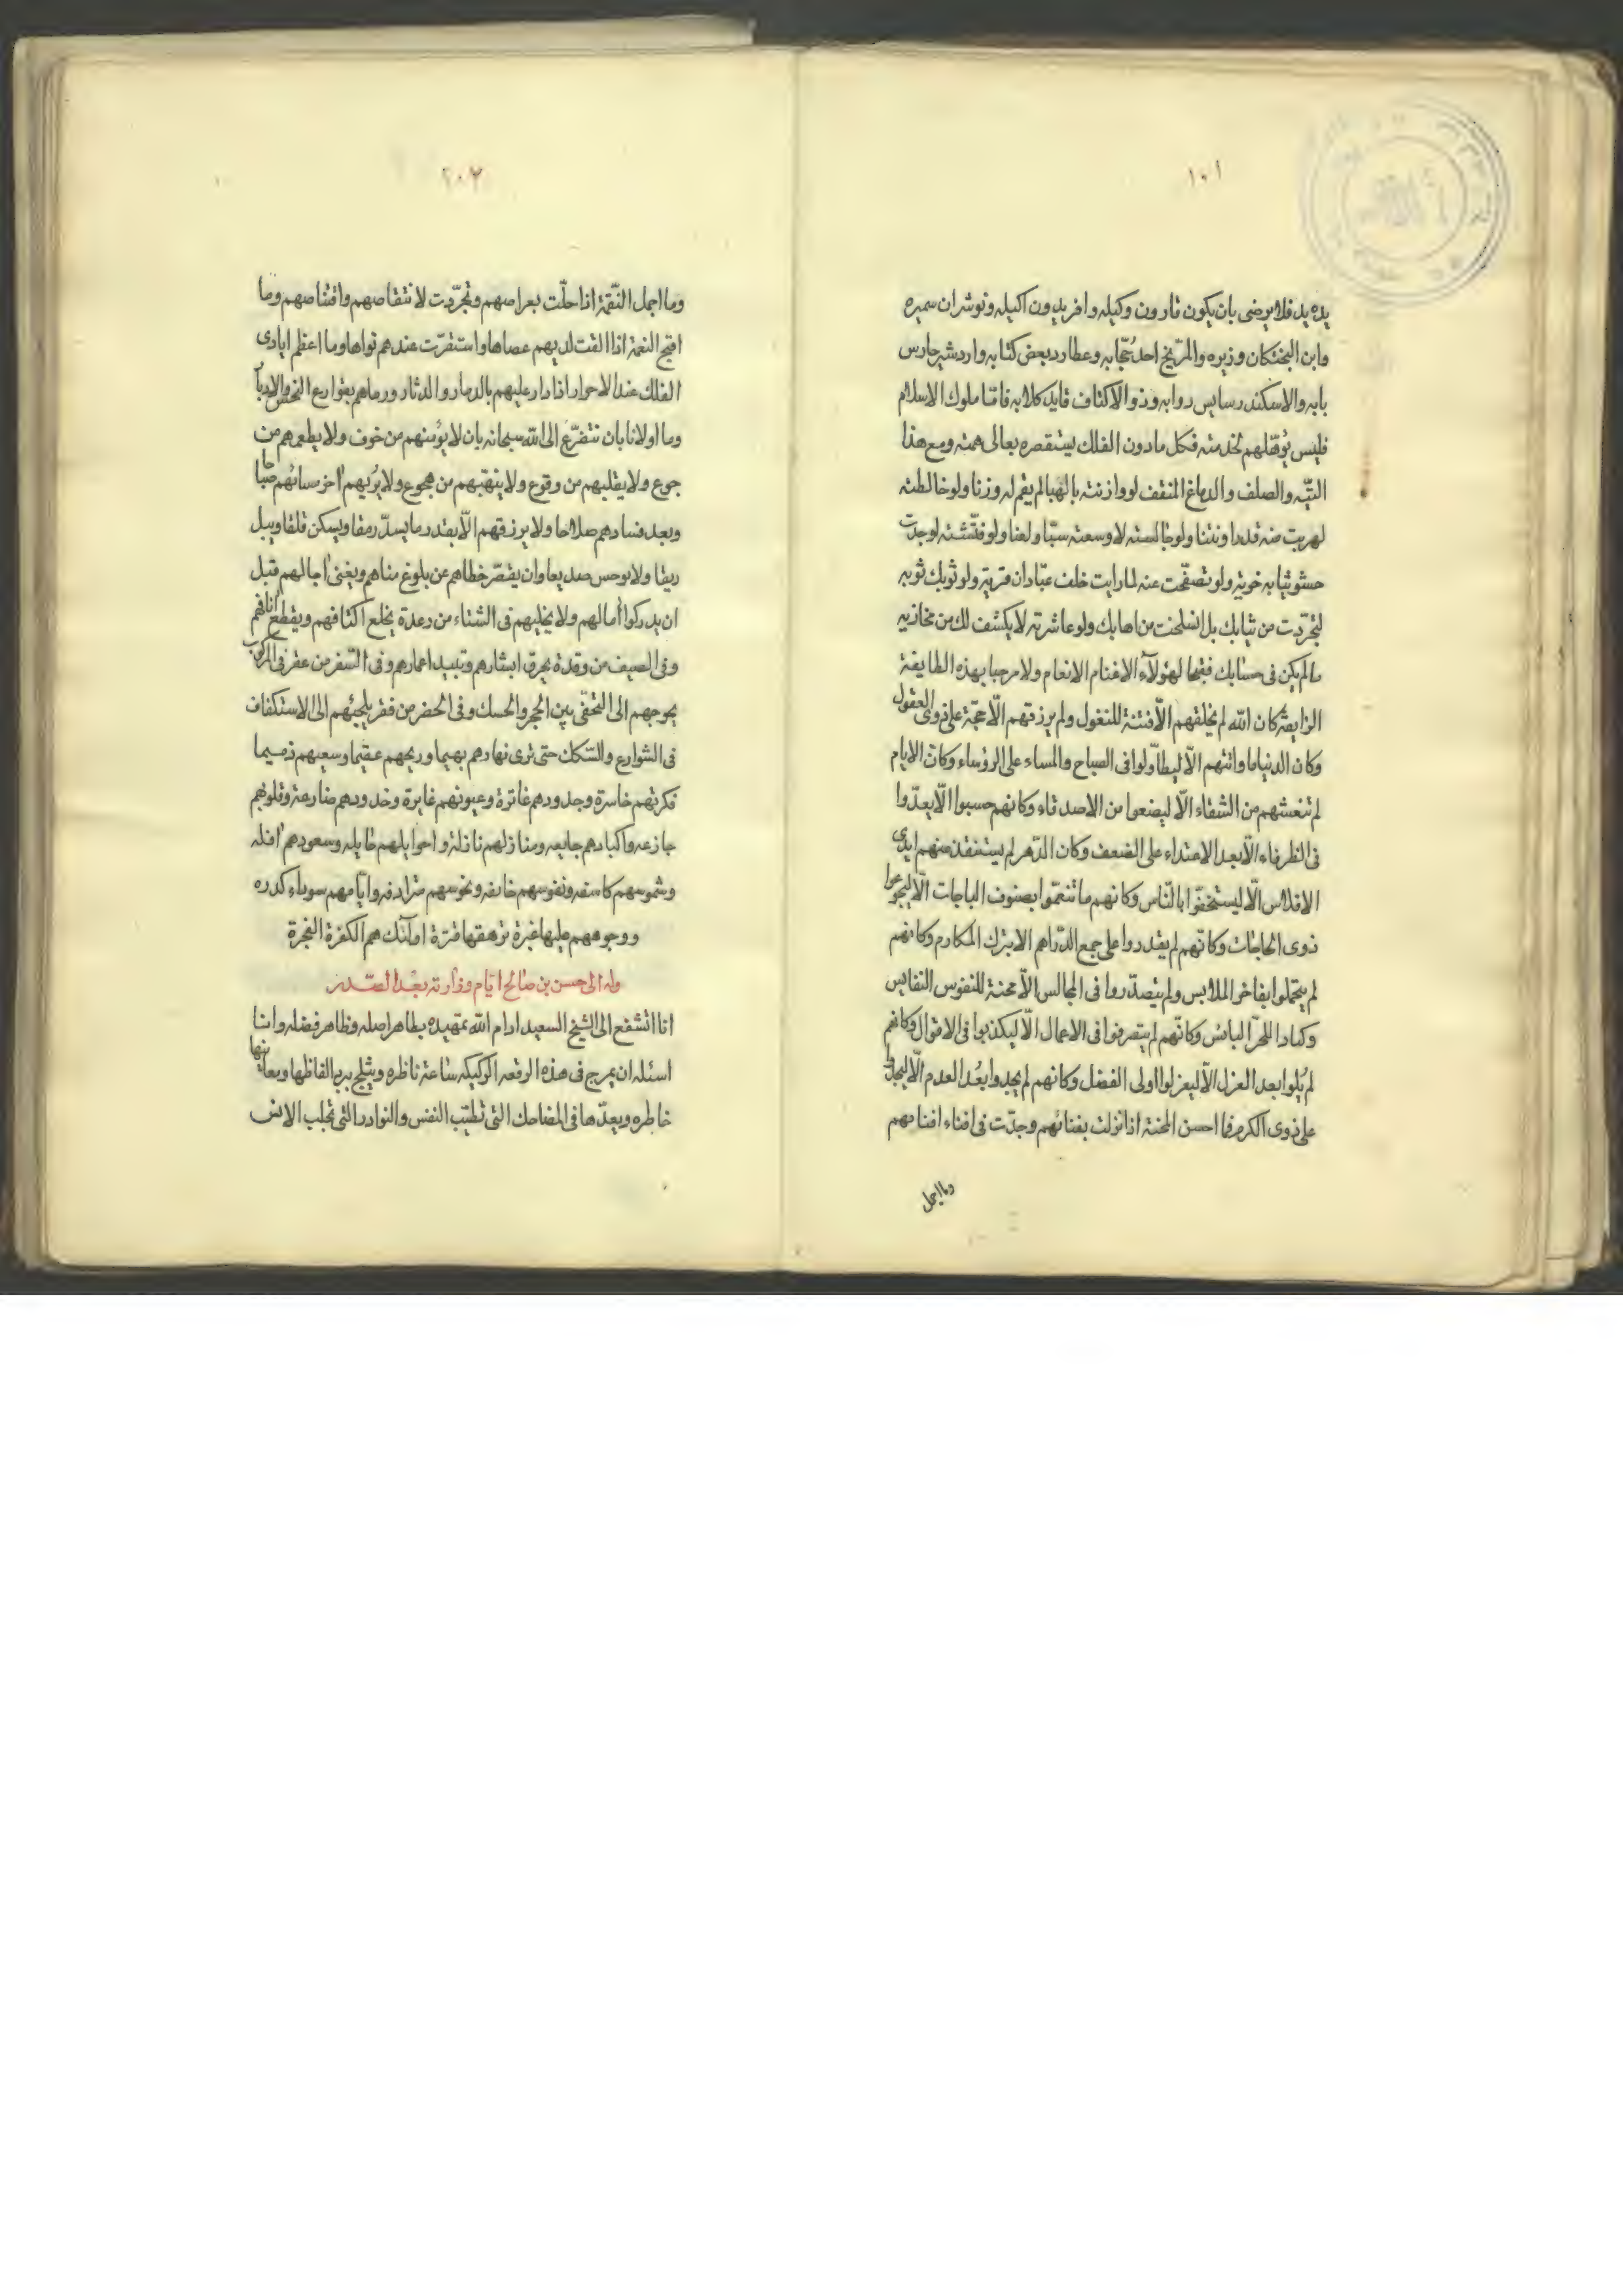 ١٠١
يده يد فلا يرضى بان يكون قارون وكيله وافريدون اكيله ونوشران سميره
وابن البختكان وزيره والمرّيخ احد حجّابه وعطارد بعض كتابه واردشير حارس
بابه والاسكندر سايس دوابه وذو الاكتاف قايد كلابه فامّا ملوك الاسلام
فليس يؤهّلهم لخدمته فكل مادون الفلك يستقصره بعالى همته ومع هذا
التيّه والصلف والدماغ المنقف لو وازنته بالهبا لم يقم له وزنا ولو خالطته
لهربت منه قذرا ونتنا ولو جالسته لاوسعته سبّا ولعنا ولو فتّشته لوجدت
حشو ثيابه خرية ولو تصفّحت عنه لما رايت خلف عبّادان قرية ولو ثوبك ثوبه
لتجرّدت من ثيابك بل انسلخت من اهابك ولو عاشرته لانكشف لك من مخازيه
مالم يكن فى حسابك فقبحا لهؤلاء الاغنام الانعام ولا مرحبا بهذه الطايفة
الزايفة كان الله لم يخلقهم الّا فتنة للنغول ولم يرزقهم الّا حجّة على ذوى العقول
وكان الدنيا ما واتتهم الّا ليطاولوا فى الصباح والمساء على الرؤساء وكان الايام
لم تنعشهم من الشقاء الّا ليضعوا من الاصدقاء وكانهم حسبوا الّا يعدّوا
فى الظرفاء الّا بعد الاعتداء على الضعف وكان الدّهر لم يستنقذ منهم ايدى
الافلاس الّا ليستخفّوا بالنّاس وكانهم ما تنعّموا بصنوف الباجات الّا ليجوعوا
ذوى الحاجات وكانّهم لم يقدروا على جمع الدّراهم الا بترك المكارم وكانهم
لم يتجملوا بفاخر الملابس ولم يتصدّروا فى المجالس الّا محنة للنفوس النفايس
وكمادا للحرّ البائس وكانّهم لم يتصرفوا فى الاعمال الّا ليكذبوا فى الاقوال وكانهم
لم يُلوا بعد العزل الّا ليعزلوا اولى الفضل وكانهم لم يجدوا بعُد العدم الّا ليجدّوا
على ذوى الكرم فما احسن المحنة اذا نزلت بفنائهم وجدّت فى افناء افنائهم
وما اجمل
٢٠٢
وما اجمل النّقمة اذا حلّت بعراصهم وتجرّدت لانتقاصهم واقتناصهم وما
اقبح النعمة اذا القت لديهم عصاها واستقرّت عندهم نواها وما اعظم ايادى
الفلك عند الاحرار اذا دار عليهم بالدمار والدثار ورماهم بقوارع النحس والادبار
وما اولانا بان نتضرّع الى الله سبحانه بان لا يؤمنهم من خوف ولا يطعمهم من
جوع ولا يقلبهم من وقوع ولا ينبّههم من هجوع ولا يُريهم اخر مسائهم صباحا
وبعد فسادهم صلاحا ولا يرزقهم الّا بقدر ما يسدّ رمقا ويسكن قلقا ويبل
ريقا ولا يوحس صديعا وان يقصّر خطاهم عن بلوغ مناهم ويفنى اجالهم قبل
ان يدركوا امالهم ولا يخليهم فى الشتاء من رعدة يخلع اكتافهم ويقطع انافهم
وفى الصيف من وقدة يحرق ابشارهم وتبيد اعمارهم وفى السّفر من عقر فى المركوب
يحوجهم الى التحفّى بين الحجر والحسك وفى الحضر من فقر يلجئهم الى الاستكفاف
فى الشوارع والسّكك حتى نرى نهارهم بهيما وريحهم عقيما وسعيهم ذميما
فكرتهم خاسرة وجدودهم عاثرة وعيونهم غايرة وخدودهم ضارعة وقلوبهم
جازعه واكبادهم جايعه ومنازلهم نازلة واحوالهم حايله وسعودهم افله
وشموسهم كاسفه ونفوسهم خايفه ونحوسهم مترادفه وايّامهم سوداء كدره
ووجوههم عليها غبرة ترهقها قترة اولئك هم الكفرة الفجرة
وله الى حسن بن صالح ايّام وزارته بعد الصّدر
انا اتشفع الى الشيخ السعيد ادام الله تمهيده بطاهر اصله وظاهر فضله وانا
اسئله ان يمرج فى هذه الرقعه الركيكه ساعة ناظره ويثلج ببرد الفاظها ومعانيها
خاطره ويعدّها فى المضاحك التى تطيّب النفس والنوادر التى تجلب الانس